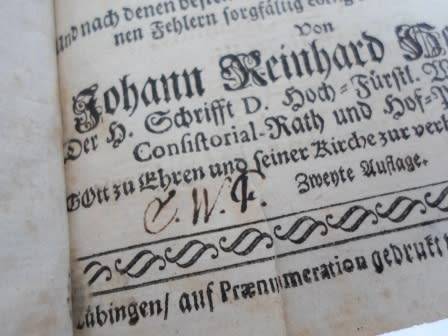 Und nach denen
nen Fehlern sorgfältig
Von
Johann Reinhard
Der H. Schrifft D. Hoch-Fürstl.
Consistorial-Rath und Hof-P
GOtt zu Ehren und seiner Kirche zur
Zweyte Auflage.
Tübingen/ auf Prænumeration gedruckt